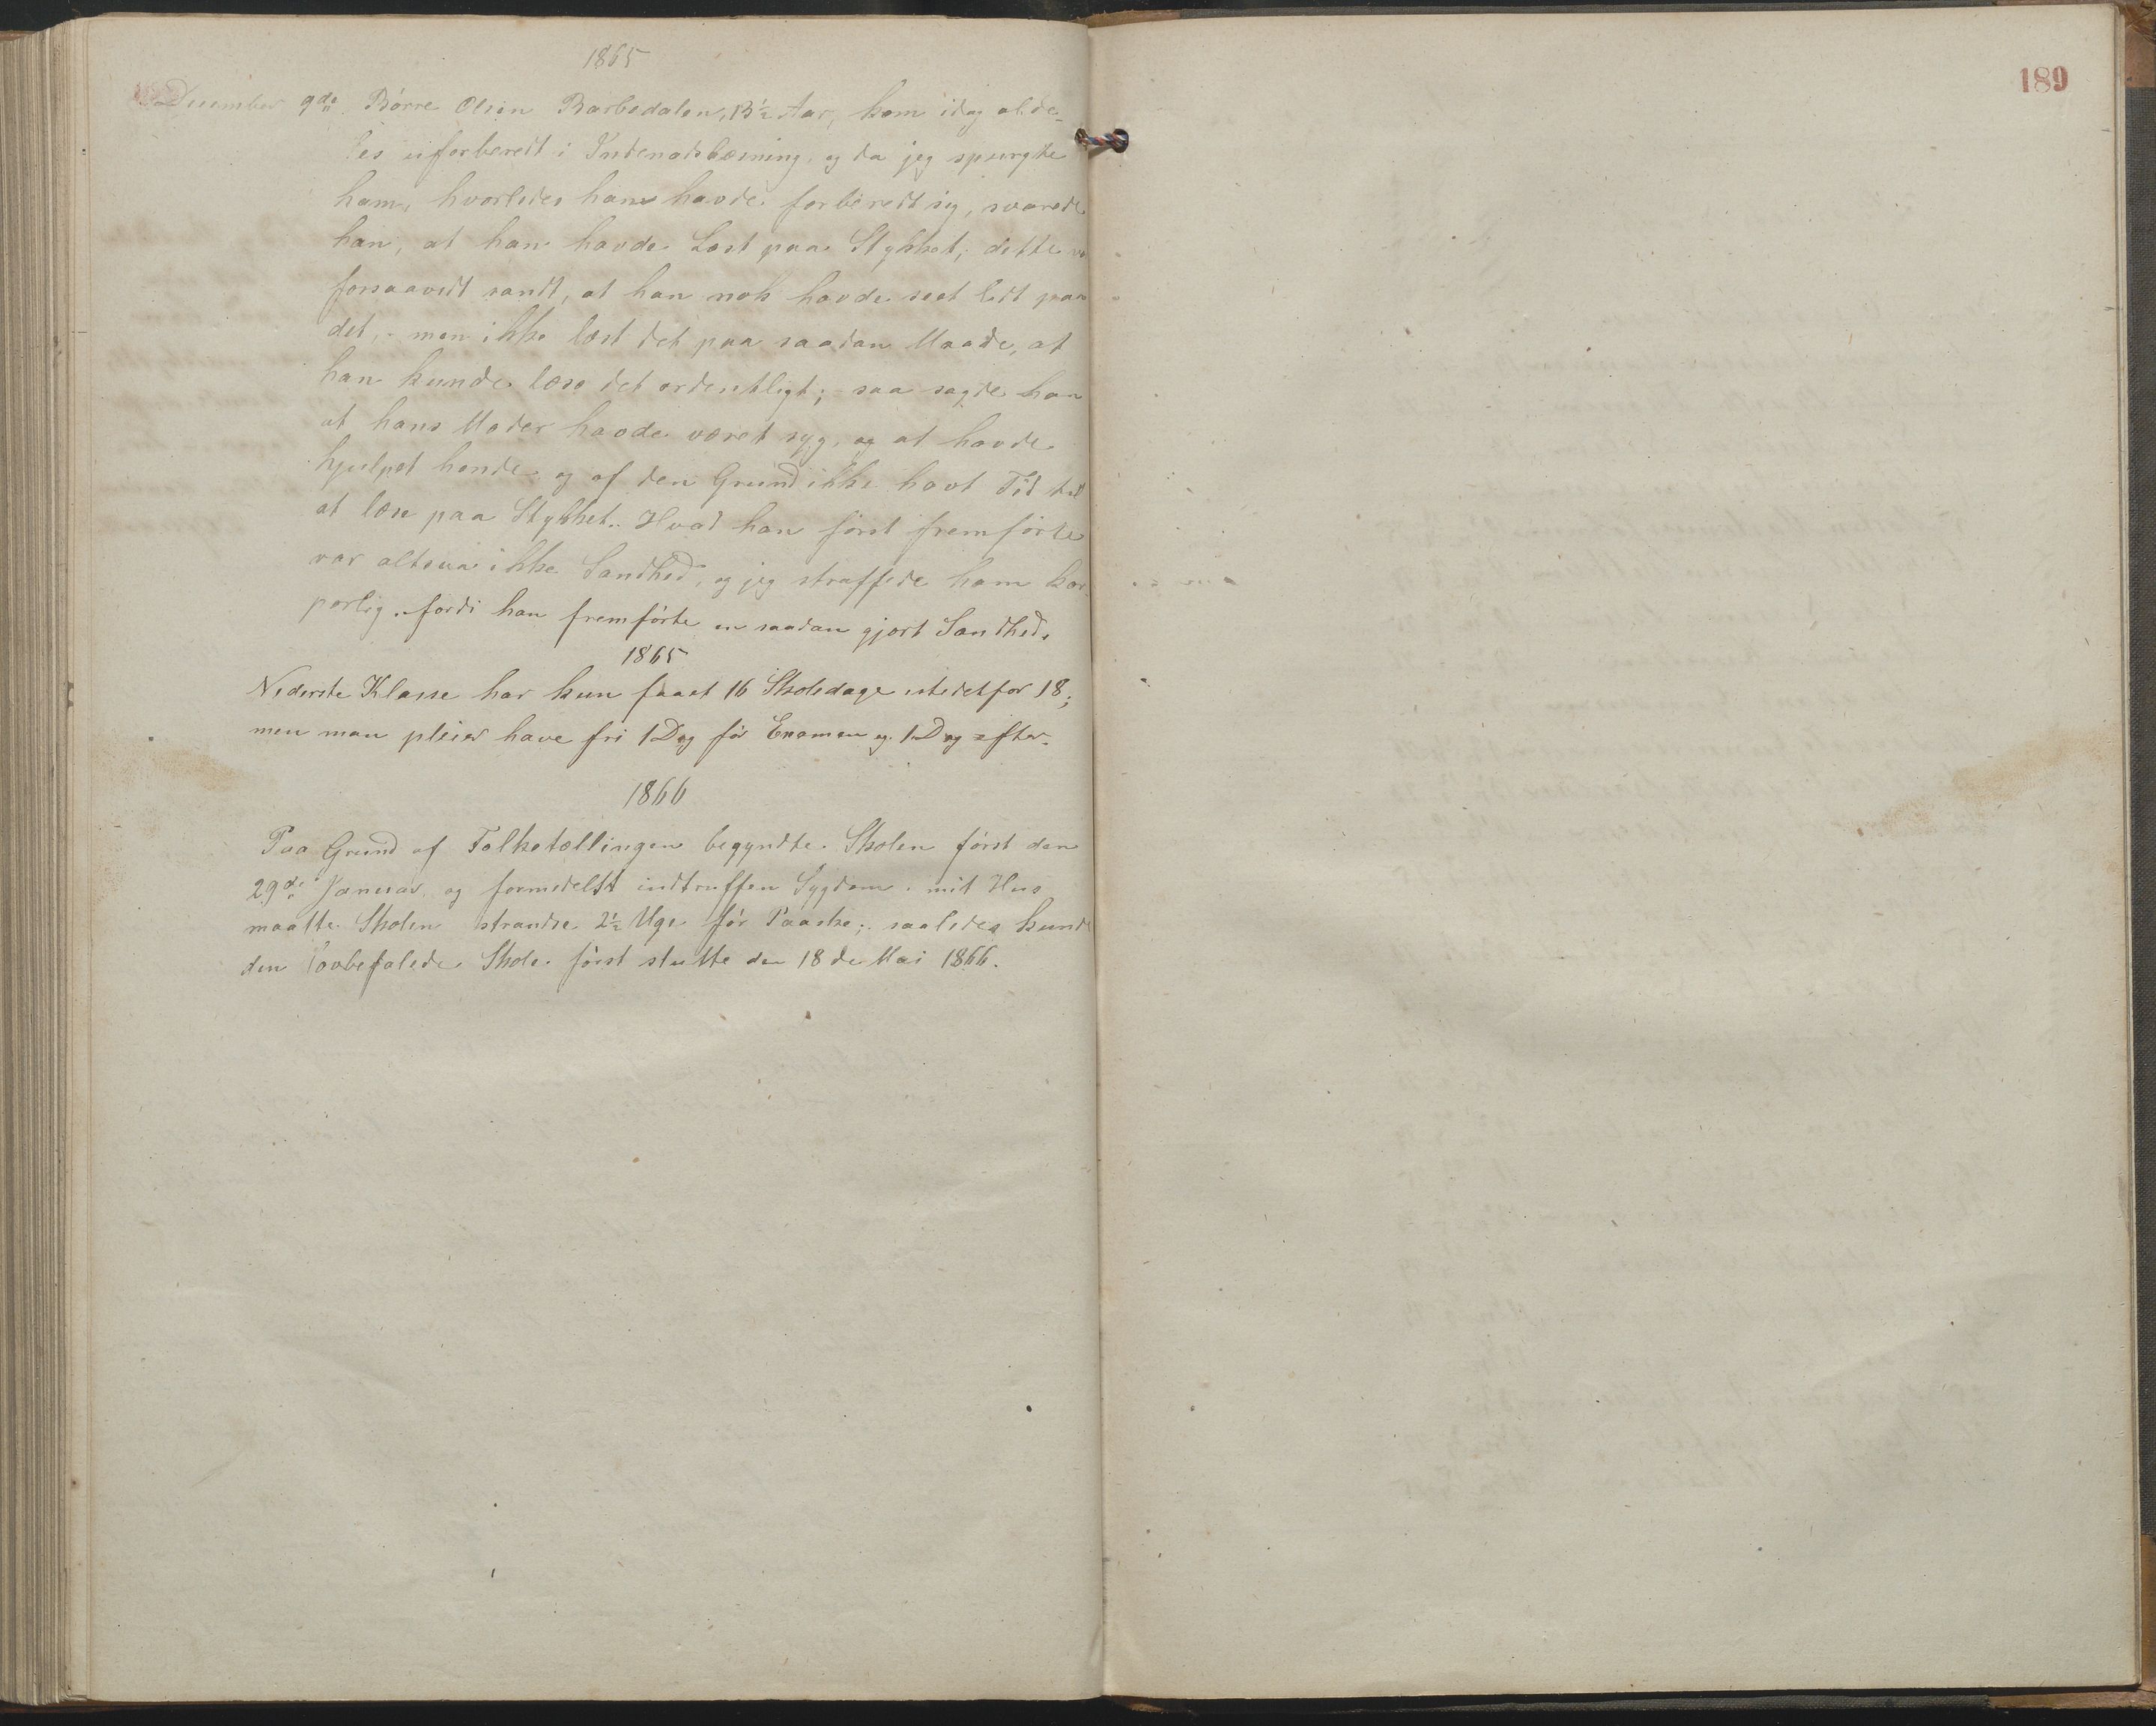 1865
December 9de Börre Olsen Barbodalen, 13½ Aar, kom idag alde-
les uforberedt i Indenadslæsning, og da jeg spurgte
ham, hvorledes han havde forberedt sig, svarede
han, at han havde Læst paa Stykket; dette
forsaavidt sandt, at han nok havde seet lidt paa
det, - men ikke læst det paa saadan Maade, at
han kunde læse det ordentligt; - saa sagde han
at hans Moder havde været syg, og at havde
hjulpet hende og af den Grund ikke havt Tid til
at læse paa Stykket. Hvad han först fremförte
var altsaa ikke Sandhed, og jeg straffede ham kor-
porlig, fordi han fremförte en saadan gjort Sandhed.
1865
Nederste Klasse har kun faaet 16 Skoledage istedetfor 18;
men man pleier have fri 1 Dag för Examen og 1 Dag efter.
1866
Paa Grund af Folketællingen begyndte Skolen först den
29de Januar, og formedelst indtruffen Sygdom i mit Hus
maatte Skolen strandse 2½ Uge för Paaske; saaledes kunde
den lovbefalede Skole först slutte den 18de Mai 1866.
189